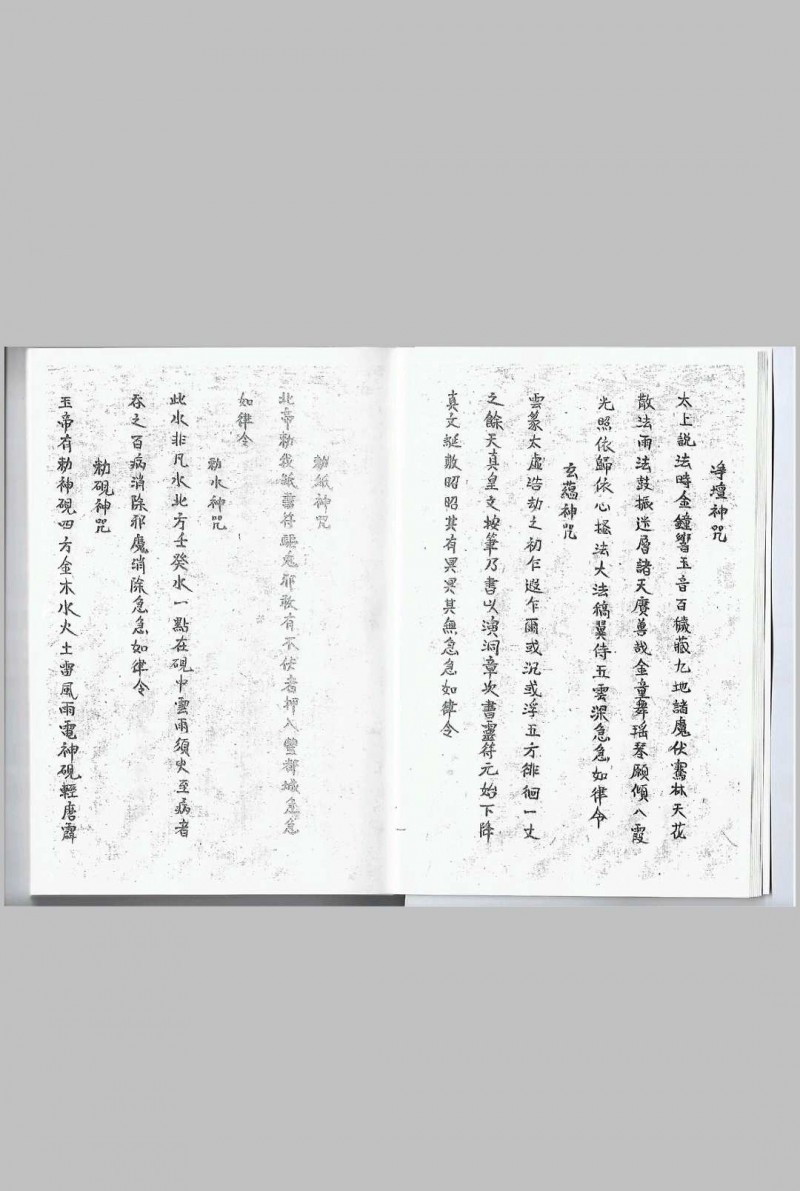 淨壇神咒
太上説法時金鐘響玉音百穢藏九地諸魔伏騫林天花
散法雨法鼓振迷層諸天賡善哉金童舞瑶琴願傾八霞
光照依歸依心搔法大法稿翼侍五雲深急急如律令
玄蘊神咒
雲篆太虛浩劫之初乍遐乍爾或沉或浮五方徘徊一丈
之餘天真皇文按筆乃書以演洞章次書靈符元始下降
真文誕敷昭昭其有冥冥其無急急如律令
勅紙神咒
北帝勅我紙書符驅鬼邪敢有不伏者押入豐都城急急
如律令
勅水神咒
此水非凡水北方壬癸水一點在硯中雲雨須臾至病者
吞之百病消除邪魔消除急急如律令
勅硯神咒
玉帝有勅神硯四方金木水火土雷風雨電神硯輕磨霹